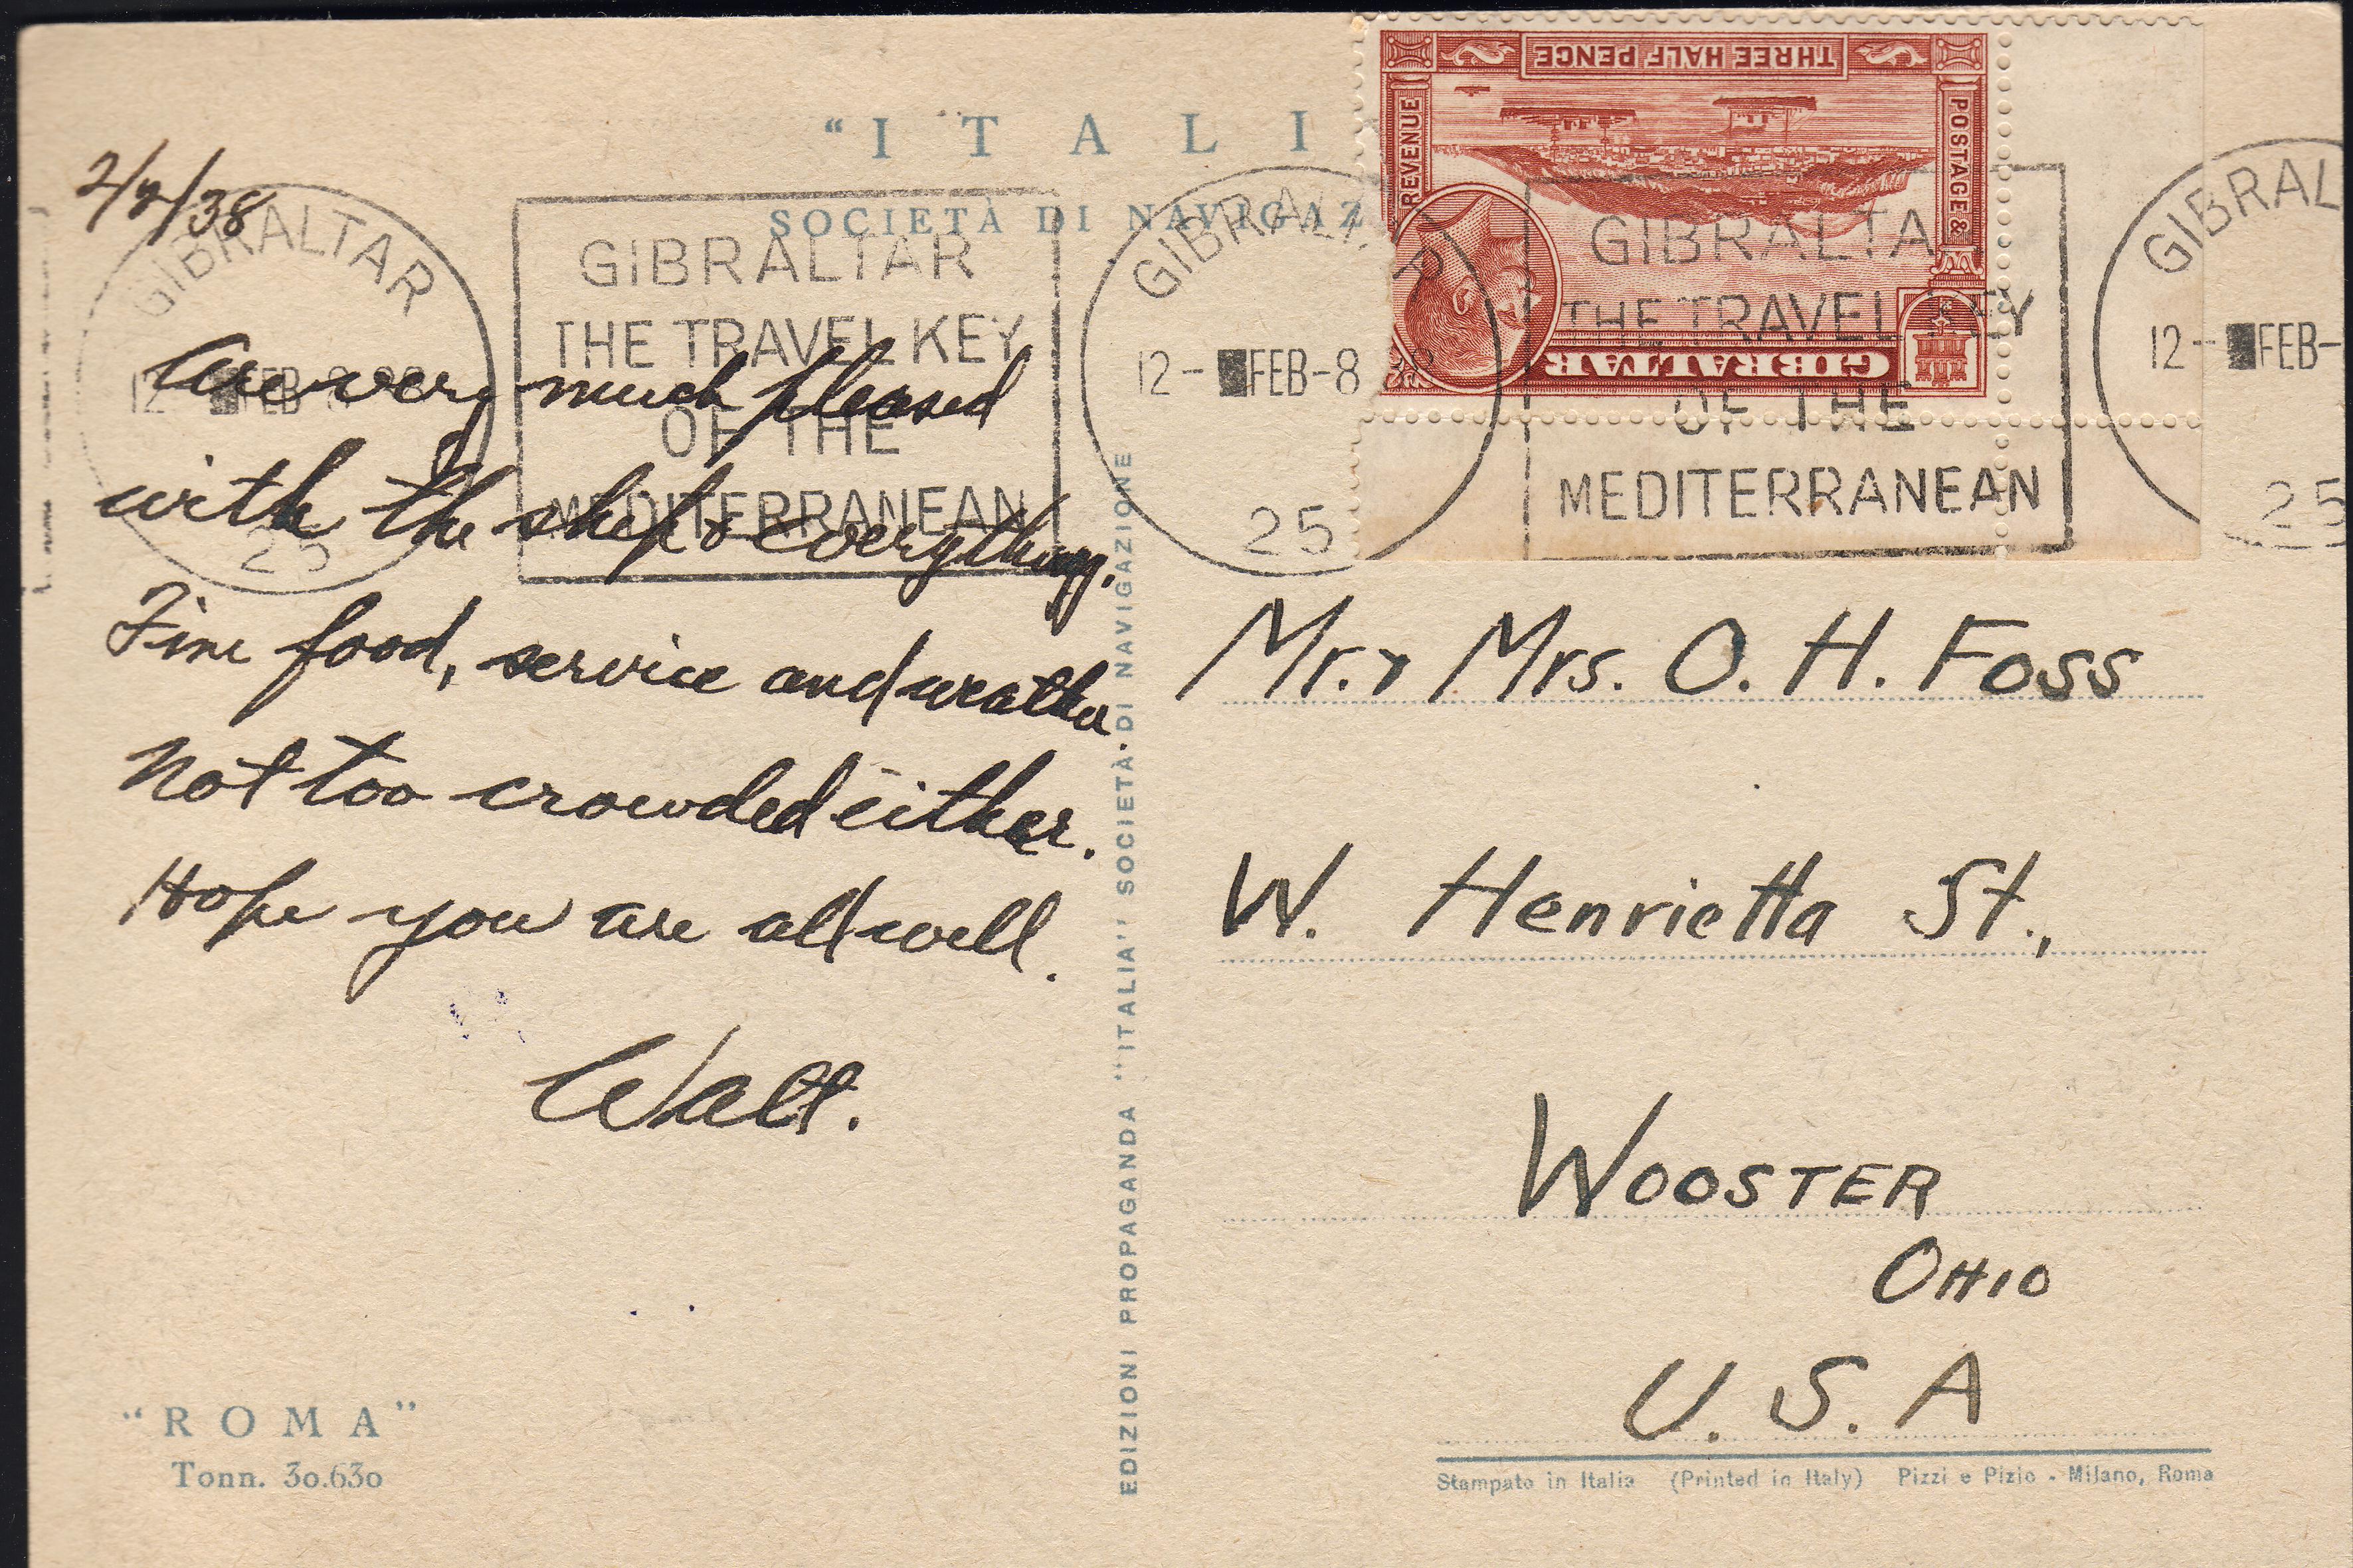 "ITALI
SOCIETÀ DI NAVIGAZ
THREE HALF PENCE
REVENUE
POSTAGE &
GIBRALTAR
GIBRALTAR
12- FEB-8 38
25
GIBRALTAR
THE TRAVEL KEY
OF THE
MEDITERRANEAN
GIBRALTAR
12- FEB-8 38
25
GIBRALTA
THE TRAVEL KEY
OF THE
MEDITERRANEAN
GIBRAL
12- FEB-
25
2/2/38
Are very much pleased
with the ship & everything.
Fine food, service and weather
Not too crowded either.
Hope you are all well.
Walt.
"ROMA"
Tonn. 30.630
EDIZIONI PROPAGANDA "ITALIA" SOCIETÀ·DI NAVIGAZIONE
Mr. & Mrs. O. H. Foss
W. Henrietta St.,
WOOSTER
OHIO
U.S.A
Stampato in Italia (Printed in Italy) Pizzi e Pizio - Milano, Roma